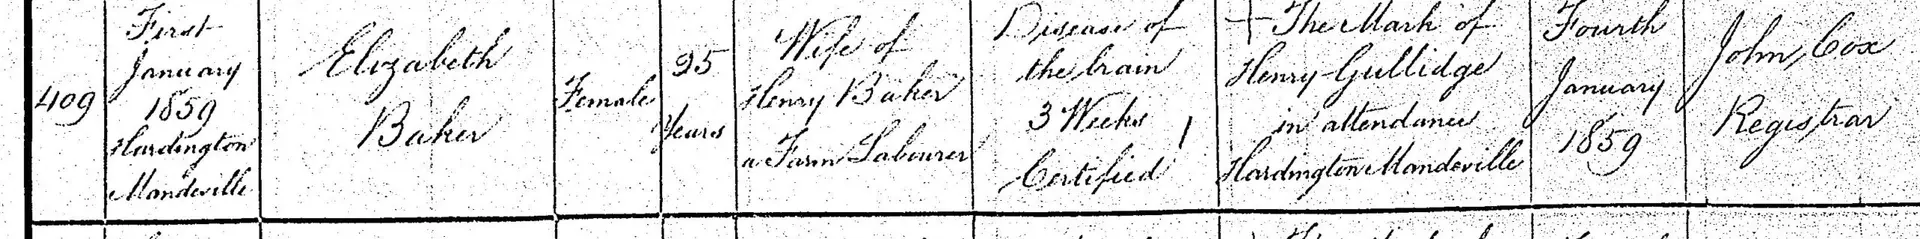 409
First
January
1859
Hardington
Mandeville
Elizabeth
Baker
Female
25
Years
Wife of
Henry Baker
a Farm Labourer
Disease of
the brain
3 Weeks
Certified
+ The Mark of
Henry Gullidge
in attendance
Hardington Mandeville
Fourth
January
1859
John Cox
Registrar